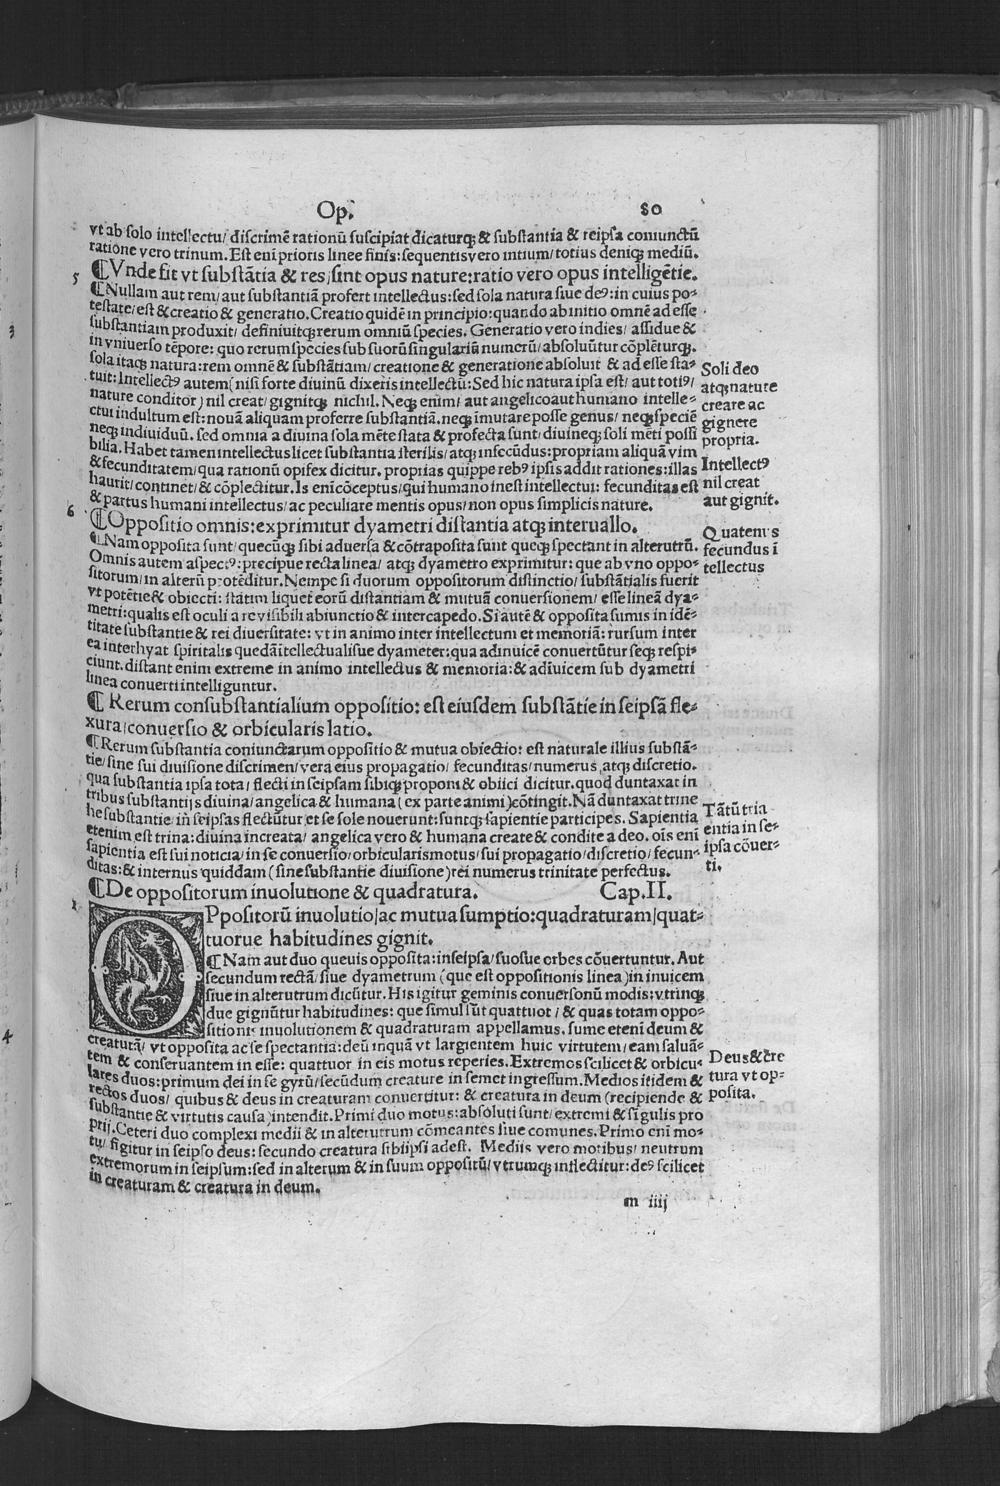 Op.
80
vt ab solo intellectu/ discrimē rationū suscipiat dicaturq; & substantia & reipsa coniunctū
ratione vero trinum. Est eni prioris linee finis: sequentis vero initium/ totius deniq; mediū.
5
¶Vnde fit vt substātia & res/ sint opus nature: ratio vero opus intelligētie.
¶Nullam aut rem/ aut substantiā profert intellectus: sed sola natura siue deꝰ: in cuius po⸗
testate/ est & creatio & generatio. Creatio quidē in principio: quando ab initio omnē ad esse
substantiam produxit/ definiuitq; rerum omniū species. Generatio vero indies/ assidue &
in vniuerso tēpore: quo rerum species sub suorū singulariū numerū/ absoluūtur cōplēturq;.
sola itaq; natura: rem omnē & substātiam/ creatione & generatione absoluit & ad esse sta⸗
tuit: Intellectꝰ autem (nisi forte diuinū dixeris intellectū: Sed hic natura ipsa est/ aut totiꝰ/
nature conditor) nil creat/ gignitq; nichil. Neq; enim/ aut angelico aut humano intelle⸗
ctui indultum est: nouā aliquam proferre substantiā. neq; imutare posse genus/ neq; speciē
neq; indiuiduū. sed omnia a diuina sola mēte stata & profecta sunt/ diuineq; soli mēti possi
bilia. Habet tamen intellectus licet substantia sterilis/ atq; infecūdus: propriam aliquā vim
& fecunditatem/ qua rationū opifex dicitur. proprias quippe rebꝰ ipsis addit rationes: illas
haurit/ continet/ & cōplectitur. Is eni cōceptus/ qui humano inest intellectui: fecunditas est
& partus humani intellectus/ ac peculiare mentis opus/ non opus simplicis nature.
Soli deo
atq; nature
creare ac
gignere
propria.
Intellectꝰ
nil creat
aut gignit.
6
¶Oppositio omnis: exprimitur dyametri distantia atq; interuallo.
¶Nam opposita sunt/ quecūq; sibi aduersa & cōtraposita sunt queq; spectant in alterutrū.
Omnis autem aspectꝰ: precipue recta linea/ atq; dyametro exprimitur: que ab vno oppo⸗
sitorum/ in alterū protēditur. Nempe si duorum oppositorum distinctio/ substātialis fuerit
vt potētie & obiecti: statim liquet eorū distantiam & mutuā conuersionem/ esse lineā dya⸗
metri: qualis est oculi a re visibili abiunctio & intercapedo. Si autē & opposita sumis in idē⸗
titate substantie & rei diuersitate: vt in animo inter intellectum et memoriā: rursum inter
ea interhyat spiritalis quedā itellectualisue dyameter: qua adinuicē conuertūtur seq; respi⸗
ciunt. distant enim extreme in animo intellectus & memoria: & adiuicem sub dyametri
linea conuerti intelliguntur.
Quatenus
fecundus i
tellectus
¶ Rerum consubstantialium oppositio: est eiusdem substātie in seipsā fle⸗
xura/ conuersio & orbicularis latio.
¶Rerum substantia coniunctarum oppositio & mutua obiectio: est naturale illius substā⸗
tie/ sine sui diuisione discrimen/ vera eius propagatio/ fecunditas/ numerus atq; discretio.
qua substantia ipsa tota/ flecti in seipsam sibiq; proponi & obiici dicitur. quod duntaxat in
tribus substantijs diuina/ angelica & humana (ex parte animi) cōtingit. Nā duntaxat trine
he substantie in seipsas flectūtur et se sole nouerunt: suntq; sapientie participes. Sapientia
etenim est trina: diuina increata/ angelica vero & humana create & condite a deo. ois eni
sapientia est sui noticia/ in se conuersio/ orbicularis motus/ sui propagatio/ discretio/ fecun⸗
ditas: & internus quiddam (sine substantie diuisione) rei numerus trinitate perfectus.
Tātū tria
entia in se⸗
ipsa cōuer⸗
ti.
¶De oppositorum inuolutione & quadratura. Cap.II.
1
OPpositorū inuolutio/ ac mutua sumptio: quadraturam/ quat⸗
tuorue habitudines gignit.
¶Nam aut duo queuis opposita: in seipsa/ suosue orbes cōuertuntur. Aut
secundum rectā/ siue dyametrum (que est oppositionis linea) in inuicem
siue in alterutrum dicūtur. His igitur geminis conuersonū modis: vtrinq;
due gignūtur habitudines: que simul sūt quattuor/ & quas totam oppo⸗
sitionis inuolutionem & quadraturam appellamus. sume eteni deum &
creaturā/ vt opposita ac se spectantia: deū inquā vt largientem huic virtutem/ eam saluā⸗
tem & conseruantem in esse: quattuor in eis motus reperies. Extremos scilicet & orbicu⸗
lares duos: primum dei in se gyrū/ secūdum creature in semet ingressum. Medios itidem &
rectos duos/ quibus & deus in creaturam conuertitur: & creatura in deum (recipiende &
substantie & virtutis causa) intendit. Primi duo motus: absoluti sunt/ extremi & sigulis pro
prij. Ceteri duo complexi medii & in alterutrum cōmeantes siue comunes. Primo eni mo⸗
tu/ figitur in seipso deus: secundo creatura sibiipsi adest. Mediis vero motibus/ neutrum
extremorum in seipsum: sed in alterum & in suum oppositū/ vtrumq; inflectitur: deꝰ scilicet
in creaturam & creatura in deum.
Deus & cre
tura vt op⸗
posita.
m iiij